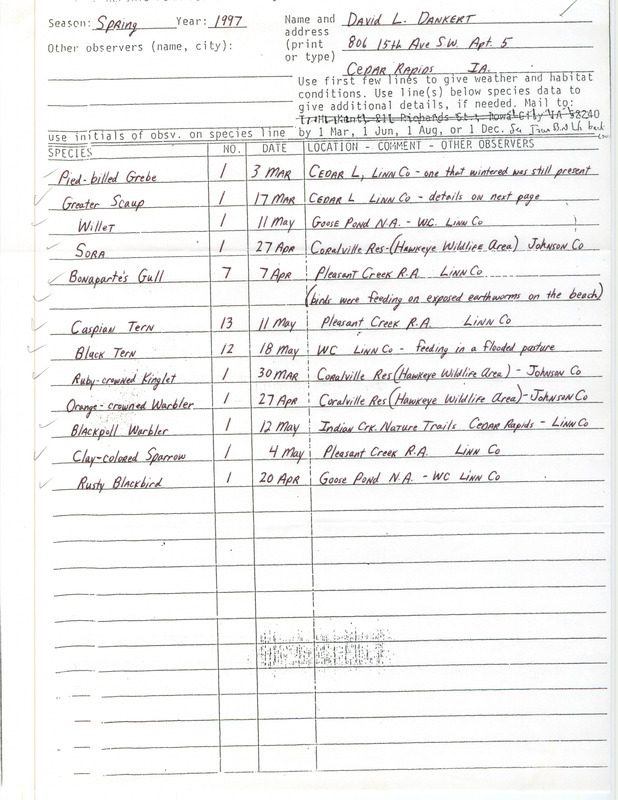 Season: Spring Year: 1997
Name and David L. Dankert
Other observers (name, city):
address 806 15th Ave SW. Apt. 5
(print
or type) Cedar Rapids IA.
Use first few lines to give weather and habitat
conditions. Use line(s) below species data to
give additional details, if needed. Mail to:
use initials of obsv. on species line by 1 Mar, 1 Jun, 1 Aug, or 1 Dec.
SPECIES NO. DATE LOCATION - COMMENT - OTHER OBSERVERS
Pied-billed Grebe 1 3 Mar Cedar L, Linn Co - one that wintered was still present
Greater Scaup 1 17 Mar Cedar L Linn Co - details on next page
Willet 1 11 May Goose Pond N.A. - WC. Linn Co
Sora 1 27 Apr Coralville Res-(Hawkeye Wildlife Area) Johnson Co
Bonaparte's Gull 7 7 Apr Pleasant Creek R.A. Linn Co
(birds were feeding on exposed earthworms on the beach)
Caspian Tern 13 11 May Pleasant Creek R.A. Linn Co
Black Tern 12 18 May WC Linn Co - feeding in a flooded pasture
Ruby-crowned Kinglet 1 30 Mar Coralville Res (Hawkeye Wildlife Area) - Johnson Co
Orange-crowned Warbler 1 27 Apr Coralville Res (Hawkeye Wildlife Area) - Johnson Co
Blackpoll Warbler 1 12 May Indian Crk. Nature Trails Cedar Rapids - Linn Co
Clay-colored Sparrow 1 4 May Pleasant Creek R.A. Linn Co
Rusty Blackbird 1 20 Apr Goose Pond N.A. - WC Linn Co